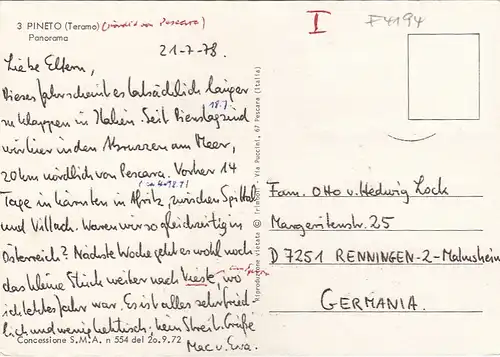 3 PINETO (Teramo) (nördlich von Pescara)
Panorama
21-7-78.
Liebe Eltern,
Dieses Jahr scheint es tatsächlich länger
zu klappen in Italien. Seit Dienstag sind
18.7.
wir hier in den Abruzzen am Meer,
20 km nördlich von Pescara. Vorher 14
Tage in Kärnten in Afritz zwischen Spittal
und Villach. Waren wir so gleichzeitig in
Österreich? Nächste Woche geht es wohl noch
das kleine Stück weiter nach Vieste, wo
ich letztes Jahr war. Es ist alles sehr fried
lich und wenig hektisch; kein Streik. Grüße
Mac u. Eva.
Concessione S.M.A. n 554 del 20.9.72
Riproduzione vietata © Trimboli - Via Puccini, 67 Pescara (Italia)
I
F4194
Fam. Otto u. Hedwig Lock
Margeritenstr. 25
D 7251 RENNINGEN-2-Malmsheim
GERMANIA.